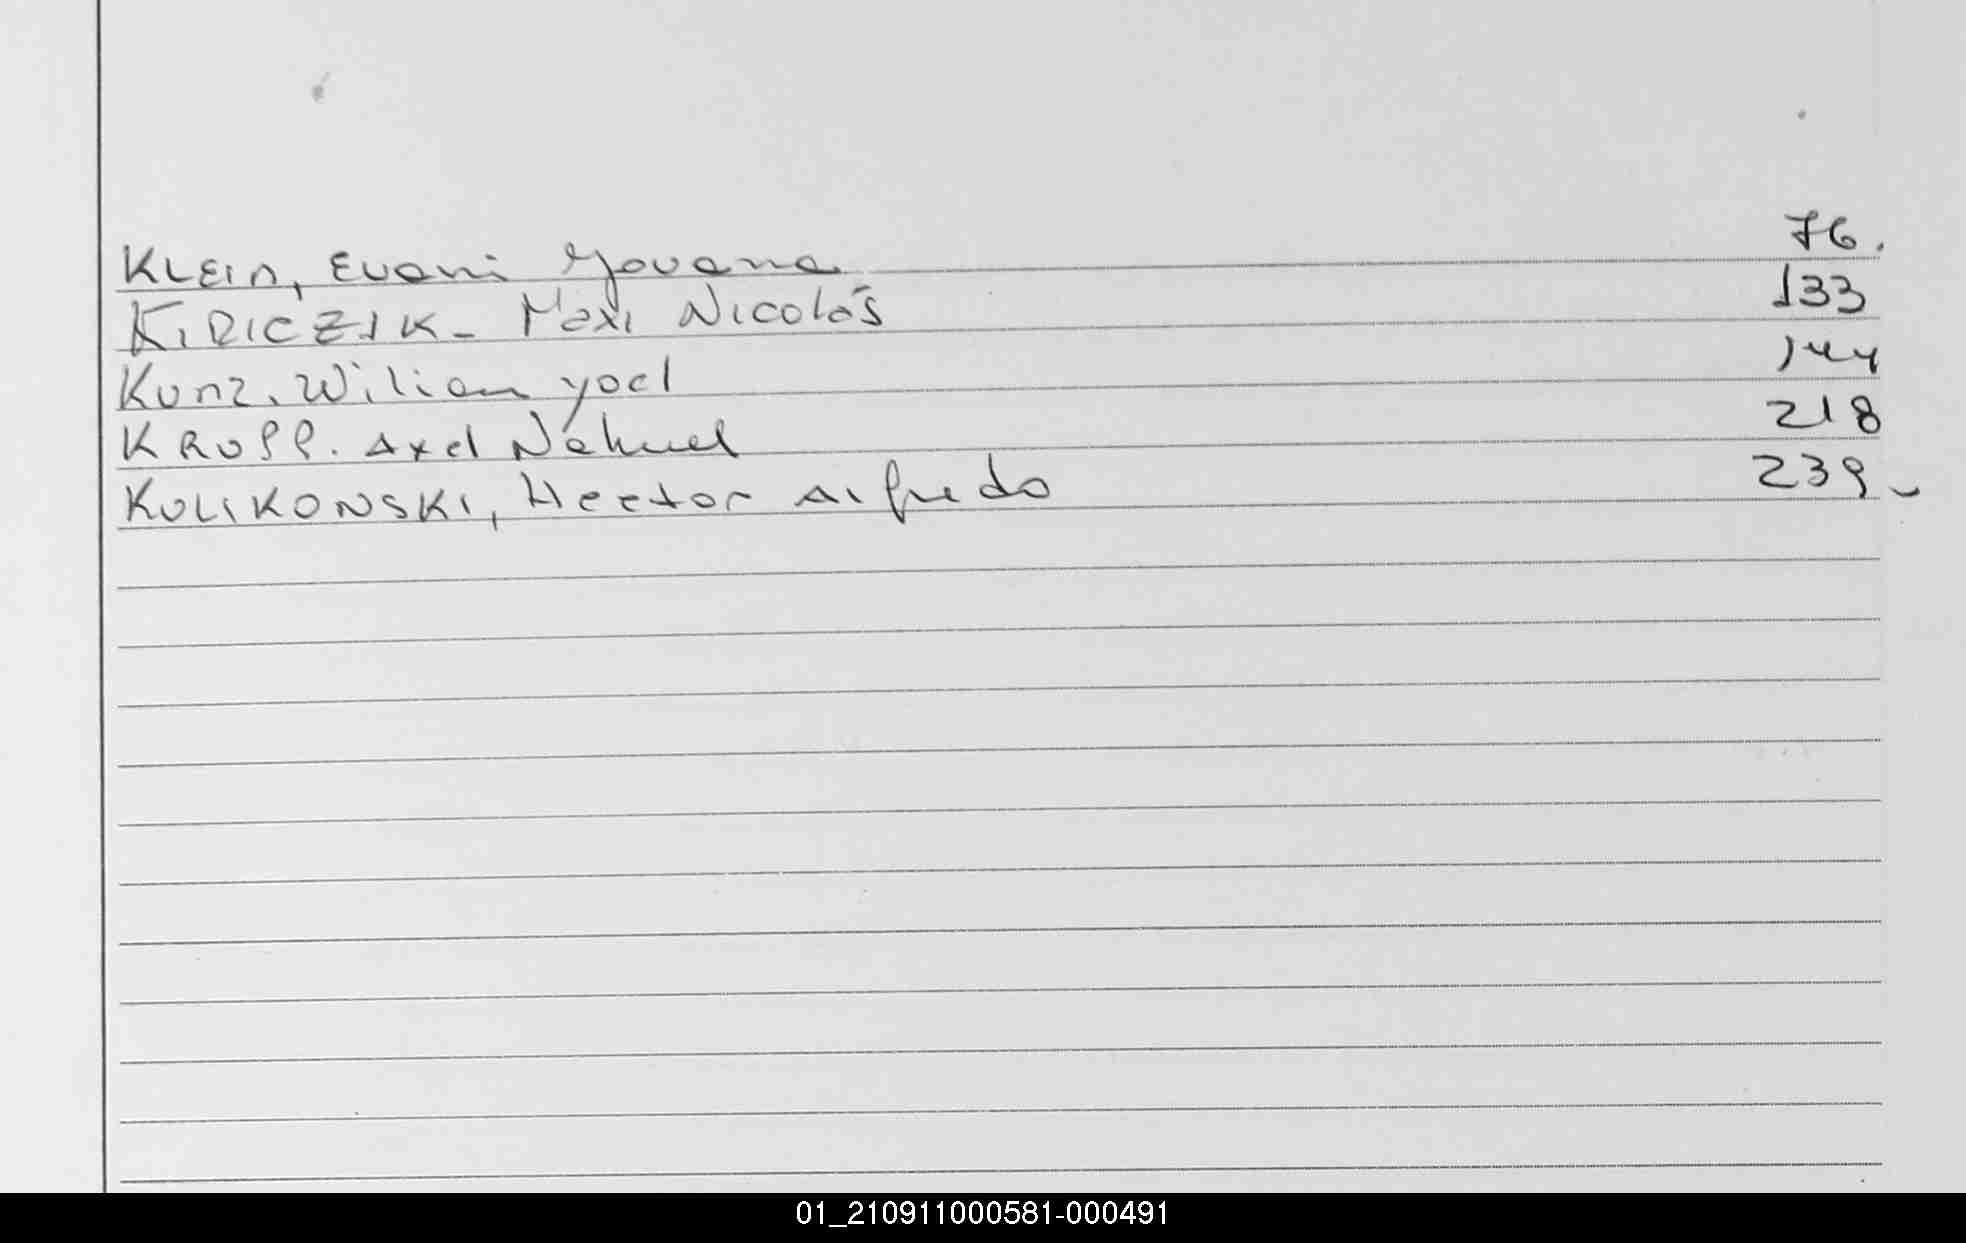 Klein, Evani Yovana 76.
KIRICZIK - Maxi Nicolás 133
Kunz. Wilian yoel 144
KRUPP. Axel Nahuel 218
KULIKOWSKI, Hector Alfredo 239
01_210911000581-000491